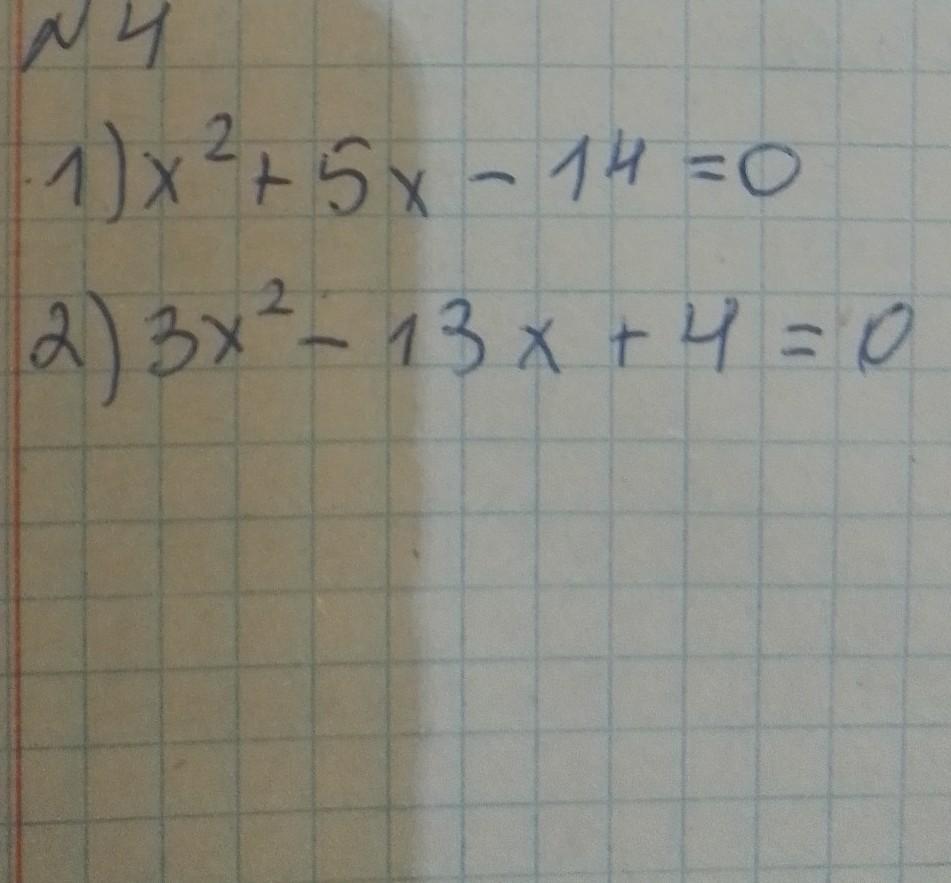 N4
1) x² + 5x - 14 = 0
2) 3x² - 13x + 4 = 0